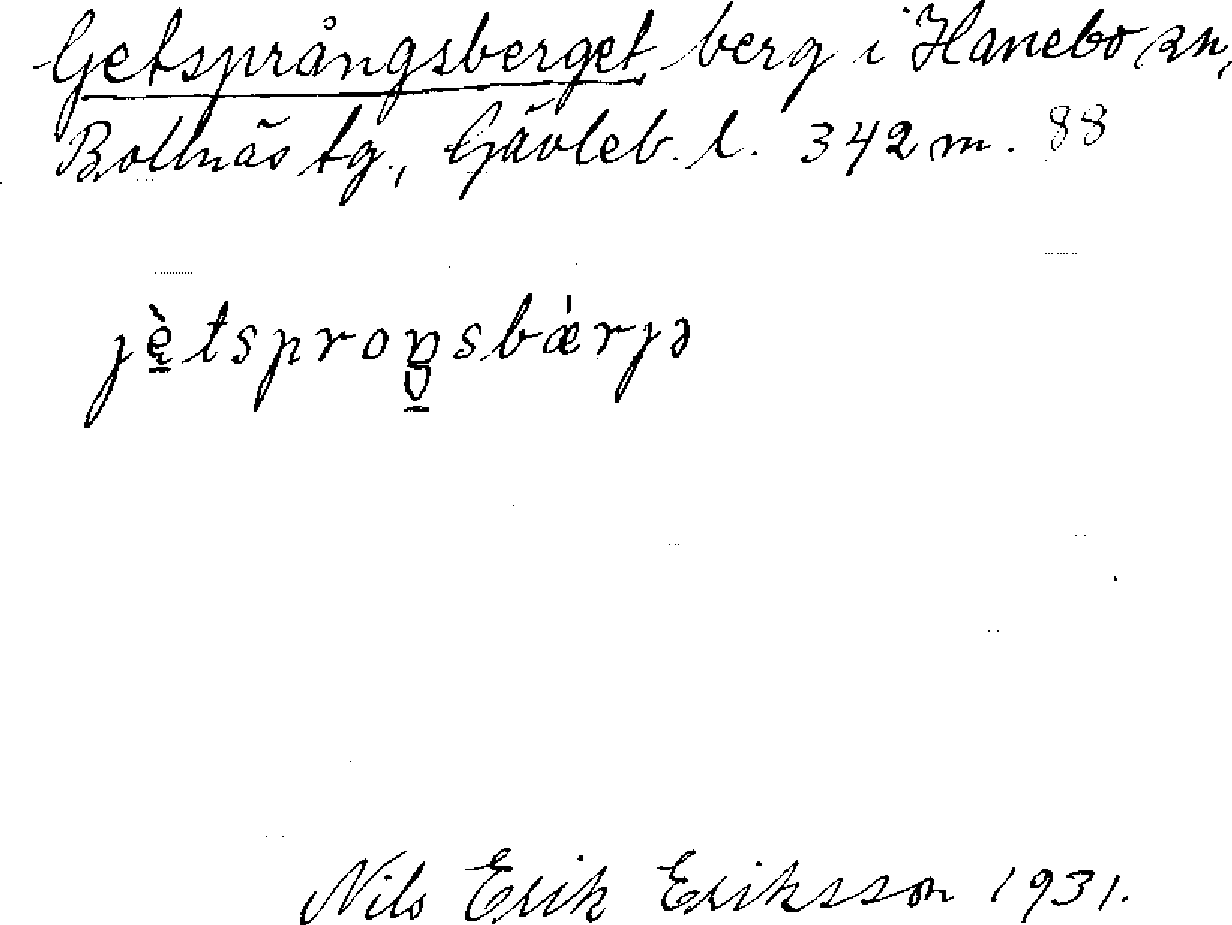 Getsprångsberget berg i Hanebo sn,
Bollnäs tg., Gävleb. l. 342 m. 88
jè̱tsproŋ̱sbǽrjə
Nils Erik Eriksson 1931.